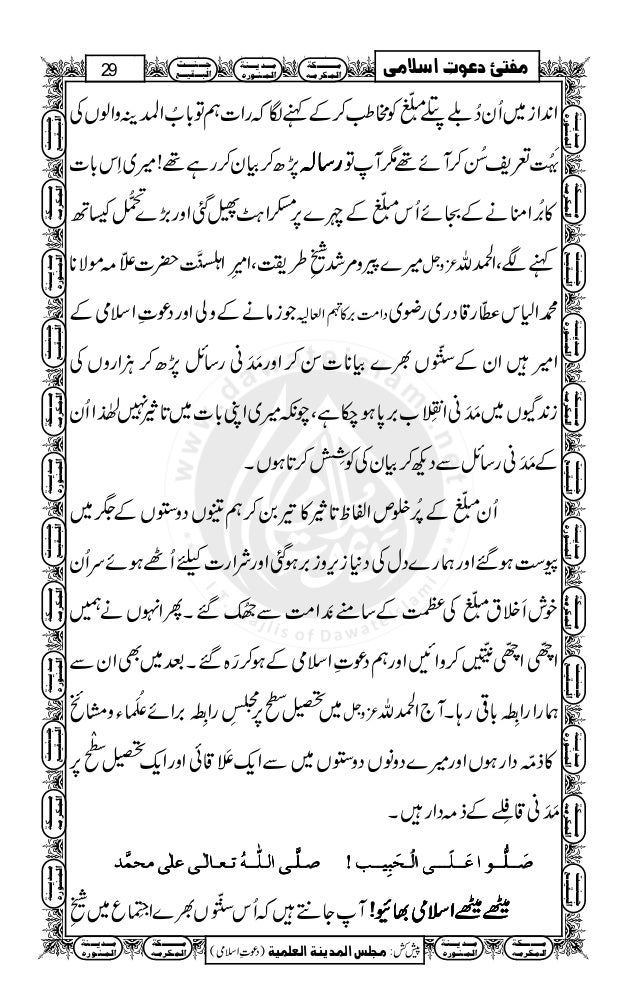 مفتیٔ دعوتِ اسلامی
مکۃ المکرمہ
مدینۃ المنورہ
جنت البقیع
29
انداز میں اُن دُبلے پتلے مبلّغ کو مخاطب کر کے کہنے لگا کہ رات ہم تو بابُ المدینہ والوں کی
بَہُت تعریف سُن کر آئے تھے مگر آپ تو رسالہ پڑھ کر بیان کر رہے تھے! میری اِس بات
کا بُرا منانے کے بجائے اُس مبلّغ کے چہرے پر مسکراہٹ پھیل گئی اور بڑے تحمُّل کیساتھ
کہنے لگے، الحمدللہ عزوجل میرے پیرومرشد شیخِ طریقت، امیرِ اہلسنَّت حضرت علّامہ مولانا
محمد الیاس عطّار قادری رضوی دامت برکاتہم العالیہ جو زمانے کے ولی اور دعوتِ اسلامی کے
امیر ہیں ان کے سنّتوں بھرے بیانات سن کر اور مَدَنی رسائل پڑھ کر ہزاروں کی
زندگیوں میں مَدَنی انقِلاب برپا ہو چکا ہے، چونکہ میری اپنی بات میں تاثیر نہیں لھٰذا اُن
کے مَدَنی رسائل سے دیکھ کر بیان کی کوشِش کرتا ہوں۔
اُن مبلّغ کے پُر خلوص الفاظ تاثیر کا تیر بن کر ہم تینوں دوستوں کے جگر میں
پیوست ہو گئے اور ہمارے دل کی دنیا زیر وزبر ہو گئی اور شرارت کیلئے اُٹھے ہوئے سر اُن
خوش اَخلاق مبلّغ کی عظمت کے سامنے نَدامت سے جُھک گئے۔ پھر انہوں نے ہمیں
اچھّی اچھّی نیّتیں کروائیں اور ہم دعوتِ اسلامی کے ہو کر رَہ گئے۔ بعد میں بھی ان سے
ہمارا رابِطہ باقی رہا۔ آج الحمدللہ عزوجل میں تحصیل سطح پر مجلسِ رابِطہ برائے عُلَماء و مشائخ
کا ذمّہ دار ہوں اور میرے دونوں دوستوں میں سے ایک عَلاقائی اور ایک تحصیل سطْح پر
مَدَنی قافلے کے ذمہ دار ہیں۔
صَلُّوا عَلَی الْحَبِیب! صلَّی اللّٰہُ تعالٰی علٰی محمَّد
میٹھے میٹھے اسلامی بھائیو! آپ جانتے ہیں کہ اُس سنّتوں بھرے اجتماع میں شیخِ
پیش کش: مجلس المدینۃ العلمیۃ (دعوتِ اسلامی)
www.dawateislami.net
I.T. Majlis of DawateIslami